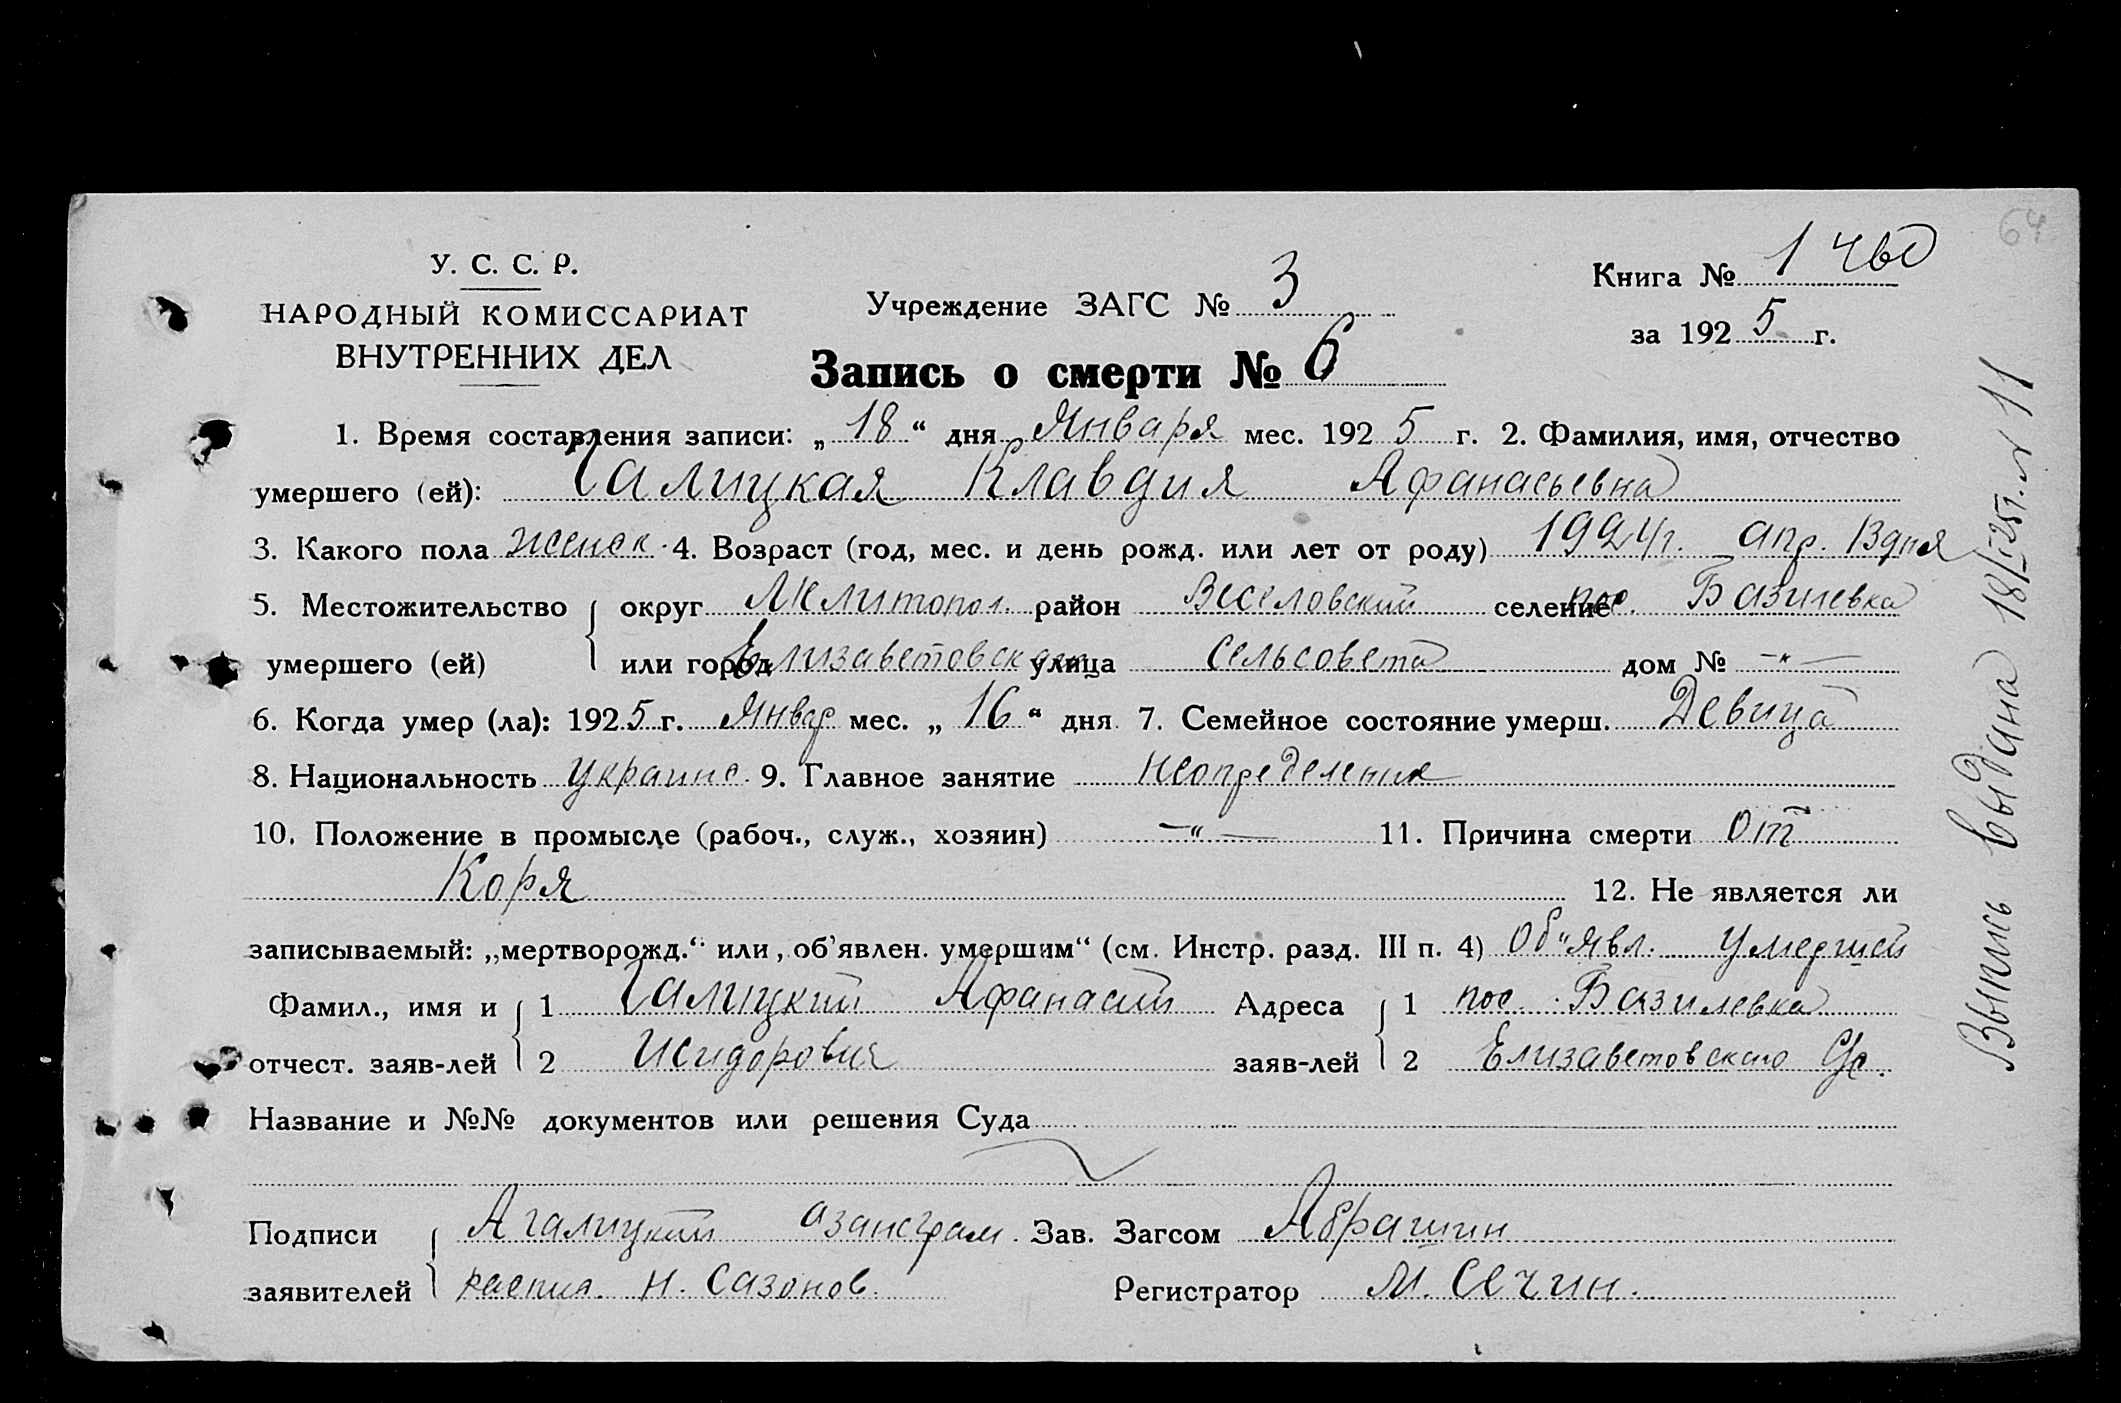 64
У. С. С. Р.
НАРОДНЫЙ КОМИССАРИАТ
ВНУТРЕННИХ ДЕЛ
Учреждение ЗАГС № 3
Книга № 1
за 1925 г.
Запись о смерти № 6
1. Время составления записи: „ 18 “ дня Января мес. 1925 г. 2. Фамилия, имя, отчество
умершего (ей): Галицкая Клавдия Афанасьевна
3. Какого пола женск. 4. Возраст (год, мес. и день рожд. или лет от роду) 1924 г. апр. 13 дня
5. Местожительство округ Мелитопол. район Веселовский селение пос. Базилевка
умершего (ей) или город Елизаветовского улица Сельсовета дом № -"-
6. Когда умер (ла): 1925 г. Январ мес. „ 16 “ дня 7. Семейное состояние умерш. Девица
8. Национальность украинс. 9. Главное занятие неопределенне
10. Положение в промысле (рабоч., служ., хозяин) -"- 11. Причина смерти от
Коря 12. Не является ли
записываемый: „мертворожд.“ или, об’явлен. умершим“ (см. Инстр. разд. III п. 4) Об"явл. умершей
Фамил., имя и 1 Галицкий Афанасий Адреса 1 пос. Базилевка
отчест. заяв-лей 2 Исидорович заяв-лей 2 Елизаветовского С/с.
Название и №№ документов или решения Суда
Подписи Агалицкий азанеграм. Зав. Загсом Абрашин
заявителей распис. Н. Сазонов. Регистратор М. Сечин.
Выпись выдана 18/I-25г. № 11